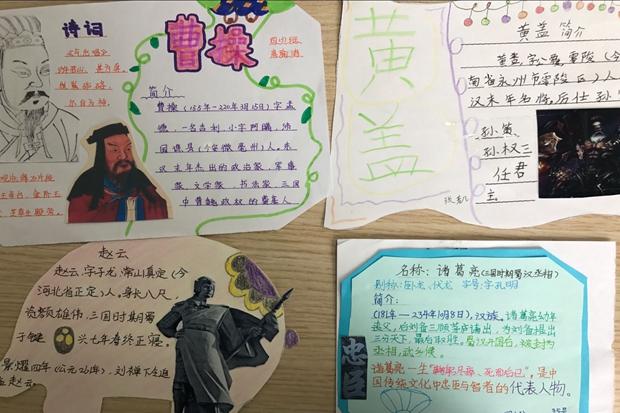 诗词
曹操
简介
曹操(155年-220年3月15日)字孟
德,一名吉利,小字阿瞒,沛
国谯县(今安徽亳州)人,东
汉末年杰出的政治家、军事
家、文学家、书法家,三国
中曹魏政权的奠基人
黄盖
张凯
黄盖简介
黄盖,字公覆,零陵(今
南省永州市零陵区)人
汉末年名将,历仕孙
孙策、
孙权三
任君
主
赵云
赵云,字子龙,常山真定(今
河北省正定)人,身长八尺,
姿颜雄伟,三国时期蜀
兴七年春终正寝。
景耀四年(公元261年),刘禅下令追
赵云
名称:诸葛亮(三国时期蜀汉丞相)
别称:卧龙、伏龙 字号:字孔明
简介:
(181年-234年10月8日),汉族,诸葛亮幼年
丧父,后刘备三顾茅庐请出,为刘备提出
三分天下,最后取胜。蜀汉开国后,被封为
丞相,武乡侯。
诸葛亮一生“鞠躬尽瘁、死而后已”,是中
国传统文化中忠臣与智者的代表人物。
忠臣